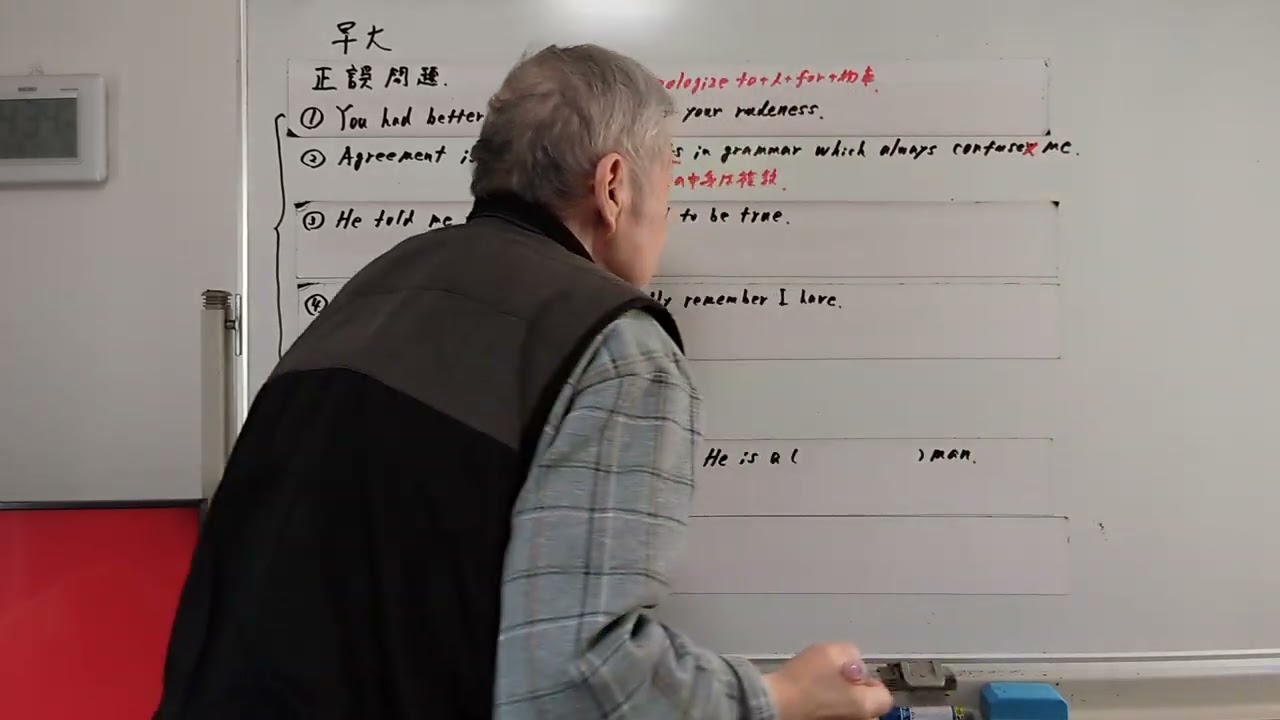 早大
正誤問題. pologize to+人+for+物事.
① You had better your rudeness.
② Agreement is in grammar which always confuses me.
の中身は複数.
③ He told me to be true.
④ remember I have.
He is a ( ) man.